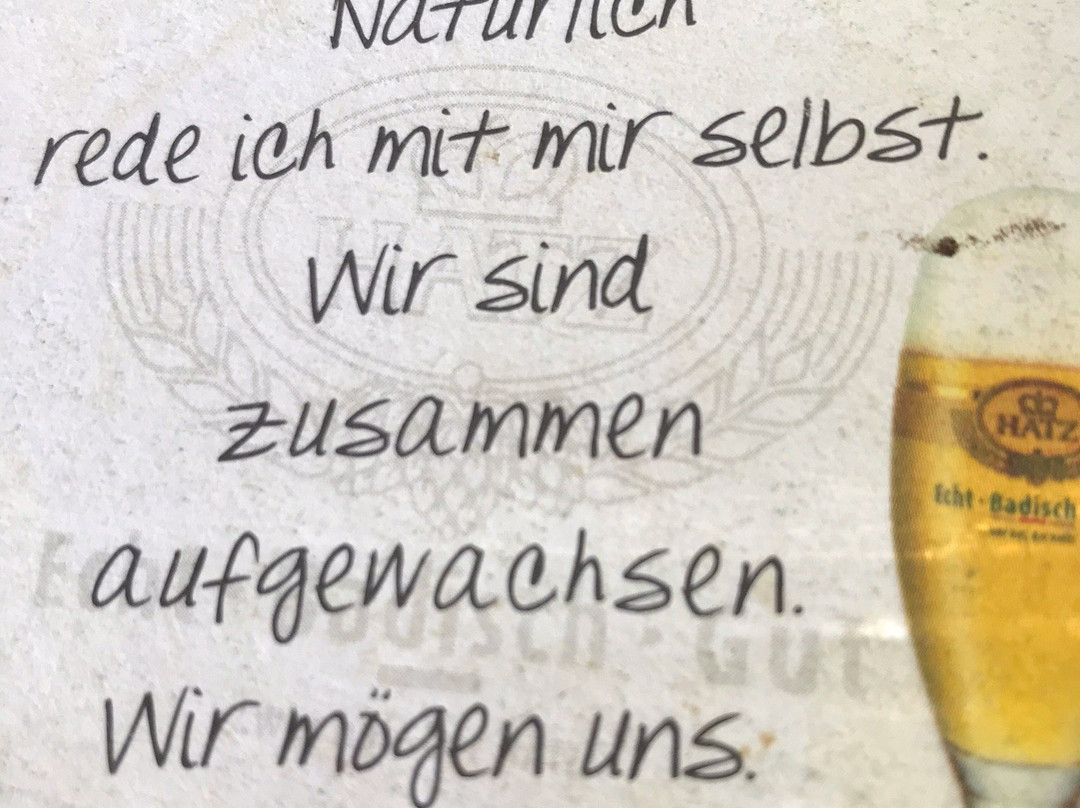 Natürlich
rede ich mit mir selbst.
Wir sind
zusammen
aufgewachsen.
Wir mögen uns.
HATZ
HATZ
Echt · Badisch